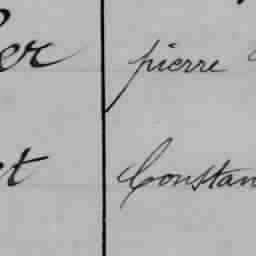 er pierre
et Constan